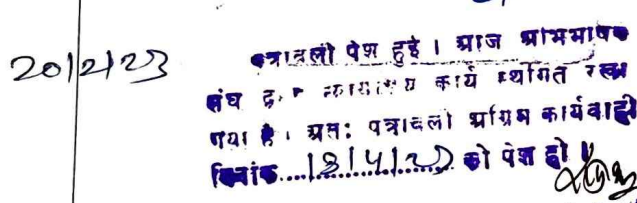 20/2/23
पत्रावली पेश हुई । आज अभिभाषक
संघ द्वारा न्यायालय कार्य स्थगित रखा
गया है । अतः पत्रावली अग्रिम कार्यवाही
दिनांक....18/4/23....को पेश हो ।